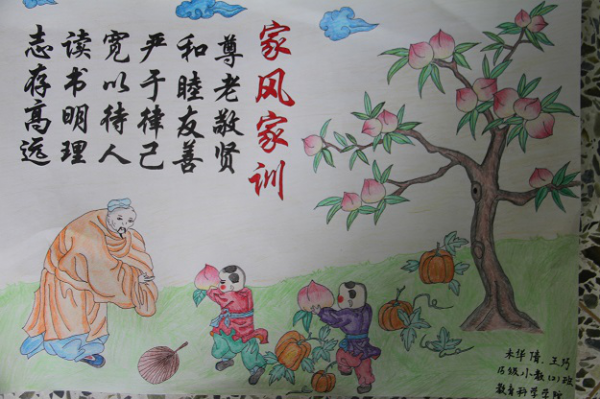 家风家训
尊老敬贤
和睦友善
严于律己
宽以待人
读书明理
志存高远
级小教(2)班
教育科学学院